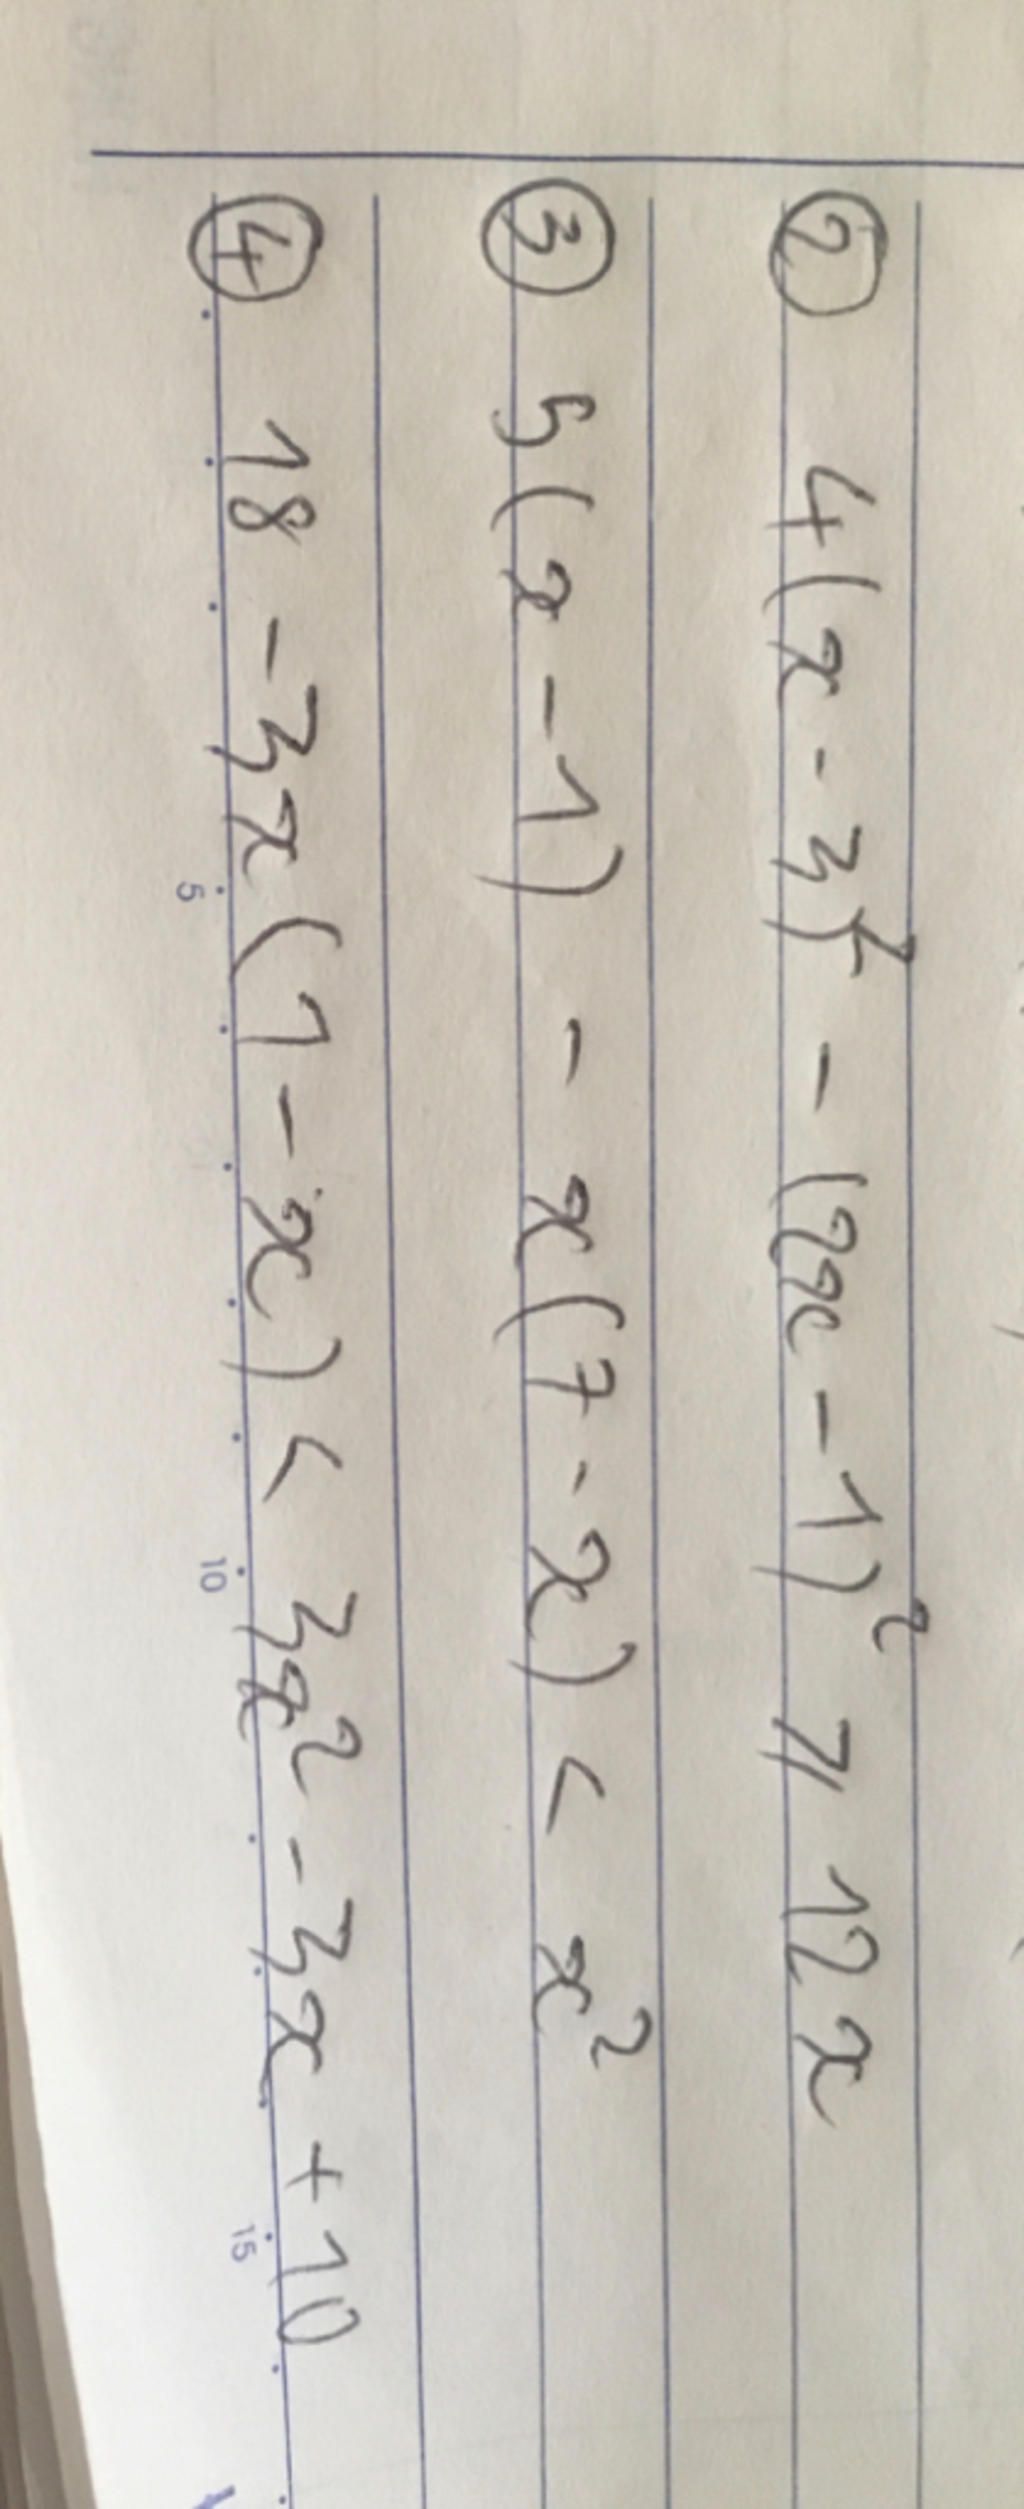 ② 4(x-3)² - (2x-1)² ⩾ 12x
③ 5(x-1) - x(7-x) < x²
④ 18 - 3x(1-x) < 3x² - 3x + 10
5 10 15